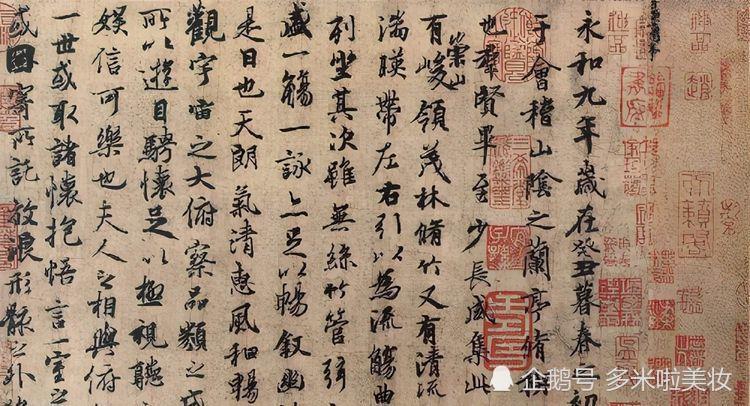 永和九年歲在癸丑暮春之初
于會稽山陰之蘭亭脩禊
也羣賢畢至少長咸集此
有崇山峻領茂林脩竹又有清流
湍暎帶左右引以為流觴曲
列坐其次雖無絲竹管弦
盛一觴一詠亦足以暢敘幽
是日也天朗氣清惠風和暢
觀宇宙之大俯察品類之盛
所以遊目騁懷足以極視聽
娛信可樂也夫人之相與俯
一世或取諸懷抱悟言一室之
或因寄所託放浪形骸之外
企鹅号 多米啦美妆